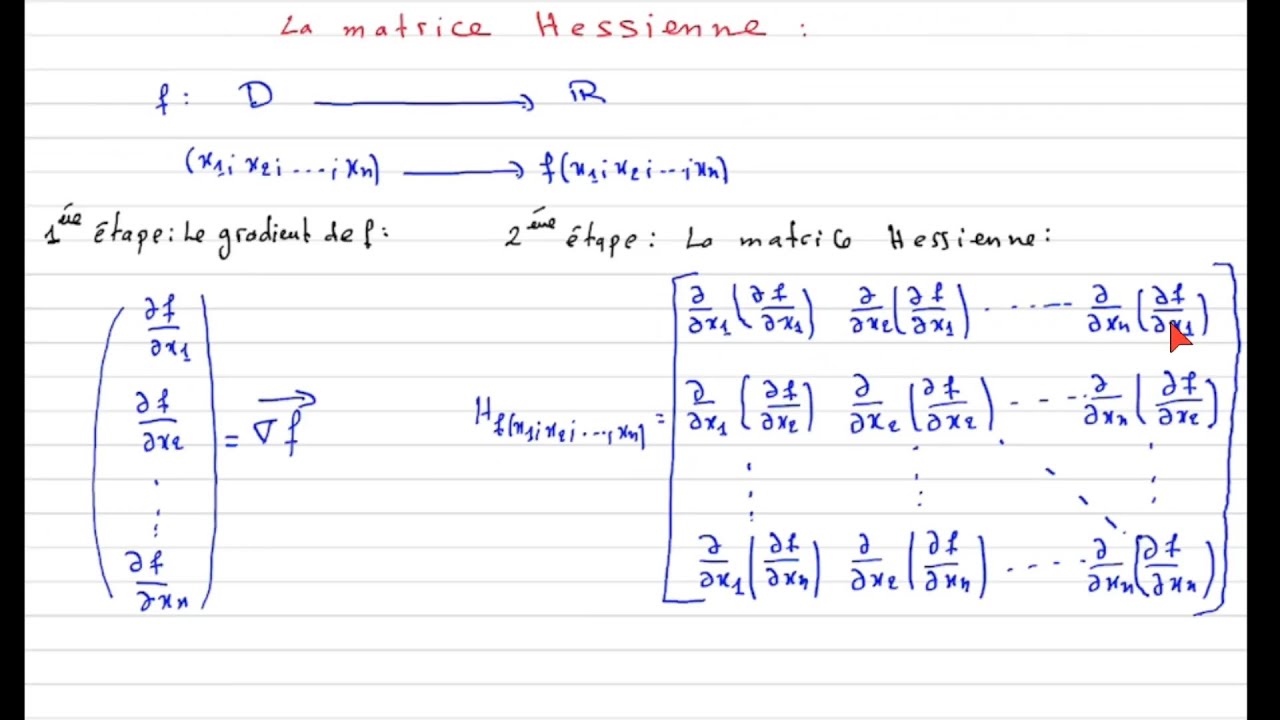 La matrice Hessienne :
f : D ⟶ ℝ
(x₁; x₂; ...; xₙ) ⟶ f(x₁; x₂; ...; xₙ)
1ère étape : Le gradient de f :
( ∂f/∂x₁
∂f/∂x₂
⋮
∂f/∂xₙ ) = ∇f⃗
2ème étape : La matrice Hessienne :
H f(x₁; x₂; ...; xₙ) =
[ ∂/∂x₁(∂f/∂x₁) ∂/∂x₂(∂f/∂x₁) ...... ∂/∂xₙ(∂f/∂x₁)
∂/∂x₁(∂f/∂x₂) ∂/∂x₂(∂f/∂x₂) ..... ∂/∂xₙ(∂f/∂x₂)
⋮ ⋮ ⋱ ⋮
∂/∂x₁(∂f/∂xₙ) ∂/∂x₂(∂f/∂xₙ) ..... ∂/∂xₙ(∂f/∂xₙ) ]